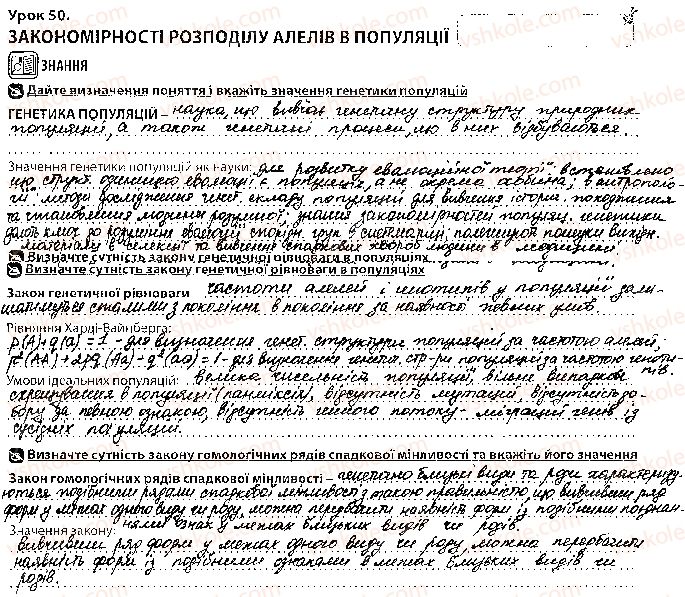 Урок 50.
ЗАКОНОМІРНОСТІ РОЗПОДІЛУ АЛЕЛІВ В ПОПУЛЯЦІЇ
ЗНАННЯ
Дайте визначення поняття і вкажіть значення генетики популяцій
ГЕНЕТИКА ПОПУЛЯЦІЙ – наука, що вивчає генетичну структуру природних
популяцій, а також генетичні процеси, що в них відбуваються.
Значення генетики популяцій як науки: для розвитку еволюційної теорії встановлено
що структ. одиницею еволюції є популяція, а не окрема особина; в антрополо-
гії методи дослідження генет. складу популяцій для вивчення історії походження
та становлення людини розумної; знання закономірностей популяц. генетики
дають ключ до розуміння еволюції споріднен. груп в систематиці, полегшують пошуки вихідн.
матеріалу в селекції та вивчення спадкових хвороб людини в медицині
Визначте сутність закону генетичної рівноваги в популяціях
Визначте сутність закону генетичної рівноваги в популяціях
Закон генетичної рівноваги частоти алелей і генотипів у популяції зали-
шатимуться сталими з покоління в покоління за наявності певних умов.
Рівняння Харді-Вайнберга:
p(A)+q(a)=1 - для визначення генет. структури популяцій за частотою алелей,
p²(AA)+2pq(Aa)+q²(aa)=1 - для визначення генетич. стр-ри популяції за частотою геноти-
пів.
Умови ідеальних популяцій: велика чисельність популяції, вільне випадкове
схрещування в популяції (панміксія), відсутність мутацій, відсутність до-
бору за певною ознакою, відсутність генного потоку - міграцій генів із
сусідніх популяцій.
Визначте сутність закону гомологічних рядів спадкової мінливості та вкажіть його значення
Закон гомологічних рядів спадкової мінливості – генетично близькі види та роди характеризу-
ються подібними рядами спадкової мінливості з такою правильністю, що вивчивши ряд
форм у межах одного виду чи роду, можна передбачити наявність форм із подібними поєднан-
нями ознак у межах близьких видів чи родів.
Значення закону:
вивчивши ряд форм у межах одного виду чи роду, можна передбачити
наявність форм із подібними ознаками в межах близьких видів чи
родів.
vshkole.com